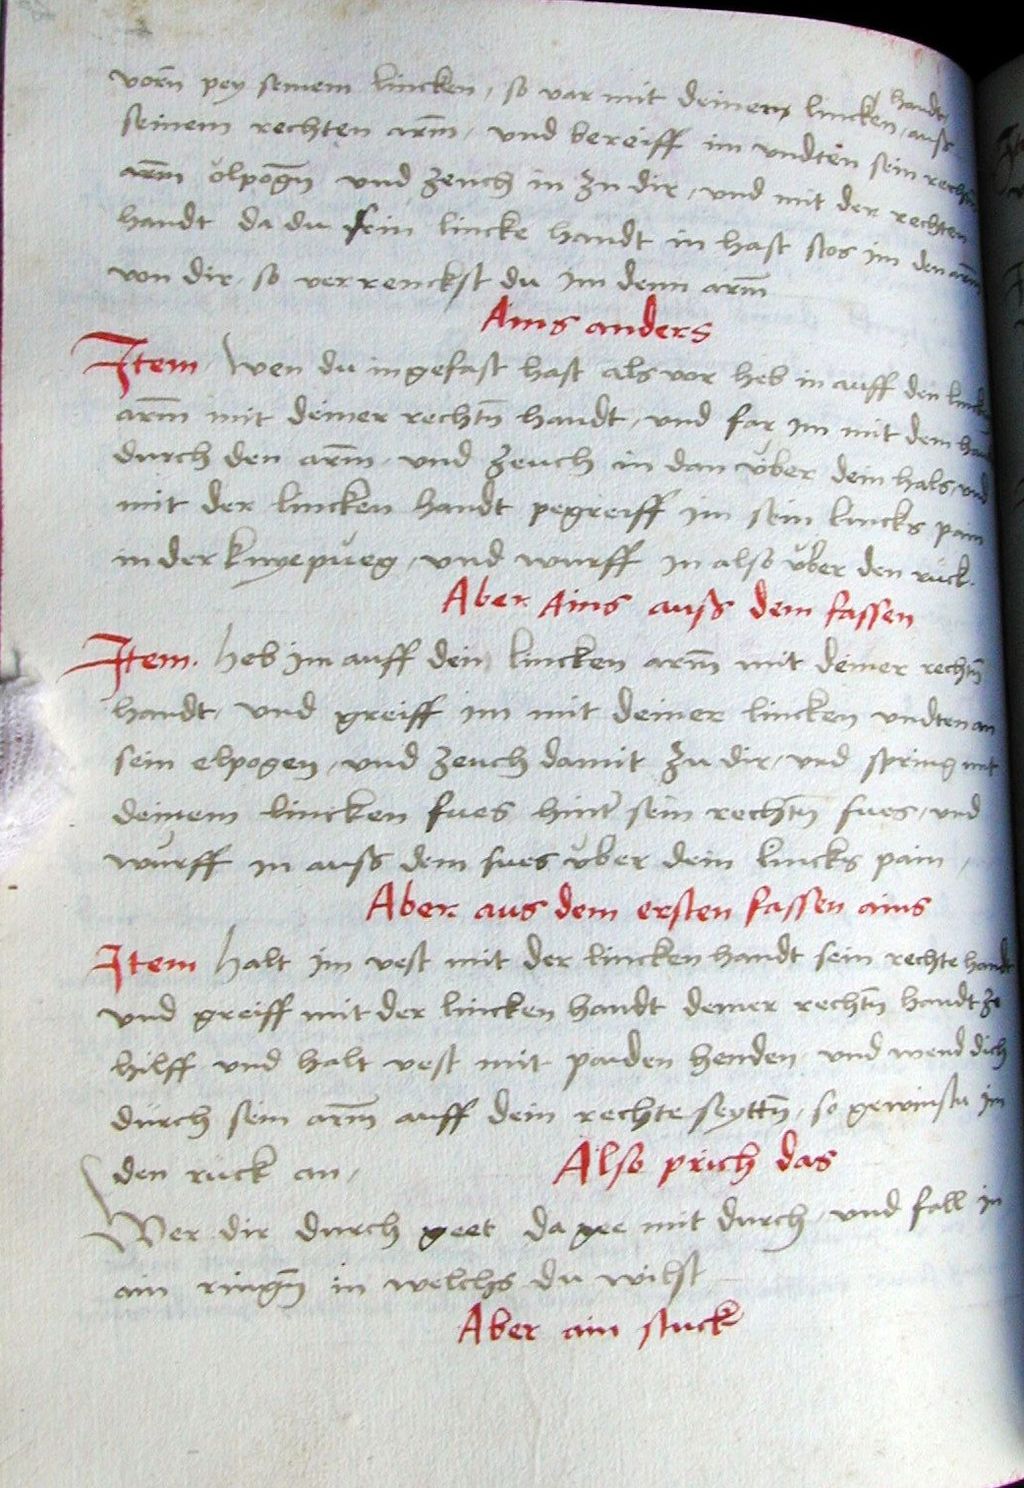 vorn pey seinem lincken, so var mit deinem lincken, handt auß
seinem rechten arm, und bereiff im undten sein rechten
arm olpogn und zeuch in zu dir, und mit der rechten
handt da du sein lincke handt in hast stos im den arm
von dir, so verrenckst du im denn arm
Ains anders
Item, Wen du in gefast hast als vor heb in auff den lincken
arm mit deiner rechtn handt, und far im mit dem
durch den arm, und zeuch in dan über dein hals, und
mit der lincken handt pegreiff im sein lincks pain
in der knyepueg, und wurff in also über den rück.
Aber Ains auss dem fassen
Item. heb im auff dein lincken arm mit deiner rechtn
handt, und greiff im mit deiner lincken undten an
sein elpogen, und zeuch damit zu dir, und spring mit
deinem lincken fues hinter sein rechtn fues, und
wurff in auss dem fues über dein lincks pain,
Aber aus dem ersten fassen ains
Item halt im vest mit der lincken handt sein rechte handt
und greiff mit der lincken handt deiner rechtn handt ze
hilff und halt vest mit paiden henden, und wend dich
durch sein arm auff dein rechte seyttn, so gewinstu im
den rück an,
Also prich das
Wer dir durch geet da gee mit durch, und fall in
ain ringn in welchs du wilst
Aber ain stuck